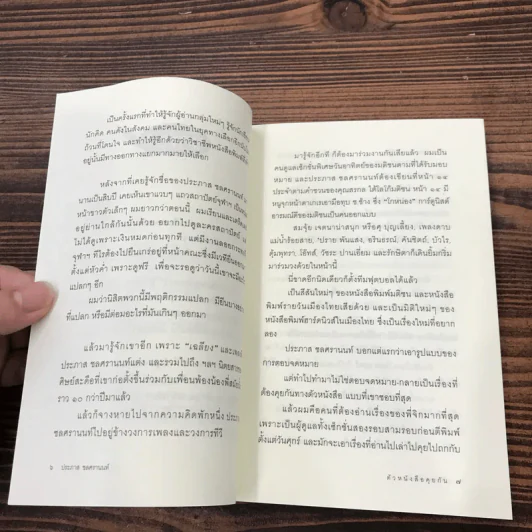 เป็นครั้งแรกที่ทำให้รู้จักผู้อ่านกลุ่มใหม่ๆ รู้จักนัก
นักคิด คนดังในสังคม และคนไทยในยุคทางเลือกอีก
ถ้วนที่โดนใจ และทำให้รู้อีกด้วยว่าวิชาชีพหนังสือพิมพ์
อยู่นั้นมีทางออกทางแยกมากมายให้เลือก
หลังจากที่เคยรู้จักชื่อของประภาส ชลศรานนท์
นานเป็นสิบปี เคยเห็นเขาแวบๆ แถวสถาปัตย์จุฬาฯ เป็น
หน้าขาวตัวเล็กๆ ผมยาวกว่าตอนนี้ ผมเรียนและ
อยู่ย่านใกล้กันนั้นด้วย อยากไปดูละครสถาปัตย์
ไม่ได้ดูเพราะเงินหมดก่อนทุกที แต่มีงานลอยกระทง
จุฬาฯ ทีไรต้องไปยืนเกร่อยู่ที่หน้าคณะซึ่งมีเวที
ตั้งแต่หัวค่ำ เพราะดูฟรี เพื่อจะรอดูว่าวันนี้เขาจะมี
แปลกๆ อีก
ผมว่านิสิตพวกนี้มีพฤติกรรมแปลก มียืนนาง
ที่แปลก หรือมีต่อมอะไรที่มันเกินๆ ออกมา
แล้วมารู้จักเขาอีก เพราะ “เฉลียง” และเพลง
ประภาส ชลศรานนท์แต่ง และรวมไปถึง ฯลฯ นิตยสาร
ศิษย์สะดือที่เขาก่อตั้งขึ้นร่วมกับเพื่อนพ้องน้องพี่สมัย
ราว ๑๐ กว่าปีมาแล้ว
แล้วก็จางหายไปจากความคิดพักหนึ่ง ประภาส
ชลศรานนท์ไปอยู่ช้างวงการเพลงและวงการทีวี
๖ ประภาส ชลศรานนท์
มารู้จักอีกที ก็ต้องมาร่วมงานกันเสียแล้ว ผมเป็น
คนดูแลเซ็กชั่นพิเศษวันอาทิตย์ของมติชนตามที่ได้รับมอบ
หมาย และประภาส ชลศรานนท์ต้องเขียนที่หน้า ๑๔
ประจำตามคำชวนของคุณสรกล ได้โลโก้มติชน หน้า ๑๔ มี
หนูจุกหน้าตาเกเรเอามืออุดหู ข้างซ้าย ซึ่ง “โกหน่อง” การ์ตูนิสต์
อารมณ์ดีของมติชนเป็นคนออกแบบ
สมจุ้ย เจตนาน่าสนุก หรือคู่ บุญเลี้ยง, เพลงดาบ
แม่น้ำร้อยสาย, ‘ปราย พันแสง, อรินธรณ์, คันฉัตต์, บัวไร,
คุ้มพุทรา, โอ๊ทส์, วัชระ ปานเอี่ยม และรักษิตาก็เดินยิ้มกริ่ม
มาร่วมวงด้วยในหน้านี้
นี่ขาดอีกนิดเดียวก็ตั้งทีมฟุตบอลได้แล้ว
เป็นสีสันใหม่ๆ ของหนังสือพิมพ์มติชน และหนังสือ
พิมพ์รายวันเมืองไทยเสียด้วย และเป็นมิติใหม่ๆ ของ
หนังสือพิมพ์ฮาร์ดนิวส์ในเมืองไทย ซึ่งเป็นเรื่องใหม่ที่อยาก
ลอง
ประภาส ชลศรานนท์ บอกแต่แรกว่าเอารูปแบบของ
การตอบจดหมาย
แต่ทำไปทำมาไม่ใช่ตอบจดหมาย-กลายเป็นเรื่องที่
ต้องคุยกันทางตัวหนังสือ แบบที่เขาชอบที่สุด
แล้วผมคือคนที่ต้องอ่านเรื่องของพี่จิกมากที่สุด
เพราะเป็นผู้ดูแลทั้งเซ็กชั่นสองรอบสามรอบก่อนตีพิมพ์
ตั้งแต่วันศุกร์ และมักจะเอาเรื่องที่อ่านไปเล่าไปคุยไปถกกับ
ตัวหนังสือคุยกัน ๗